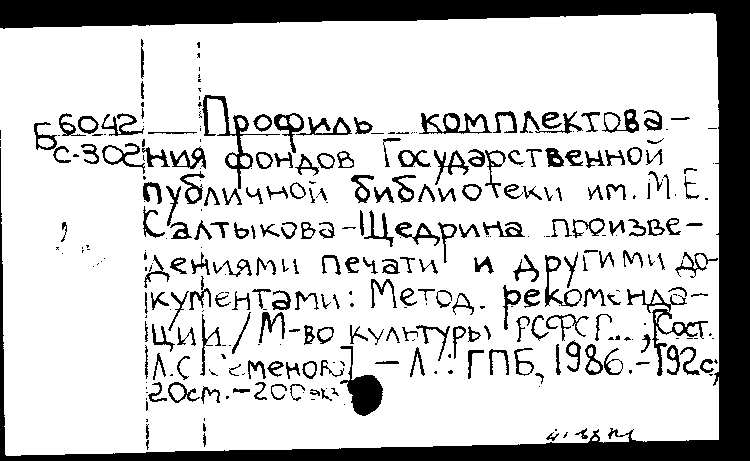 Б 6042 Профиль комплектова-
С-302 ния фондов Государственной
публичной библиотеки им. М.Е.
Салтыкова-Щедрина произве-
дениями печати и другими до-
кументами: Метод. рекоменда-
ции / М-во культуры РСФСР...; [Сост.
Л.С. Семенова]. – Л.: ГПБ, 1986. – 192 с;
20 см. – 200 экз